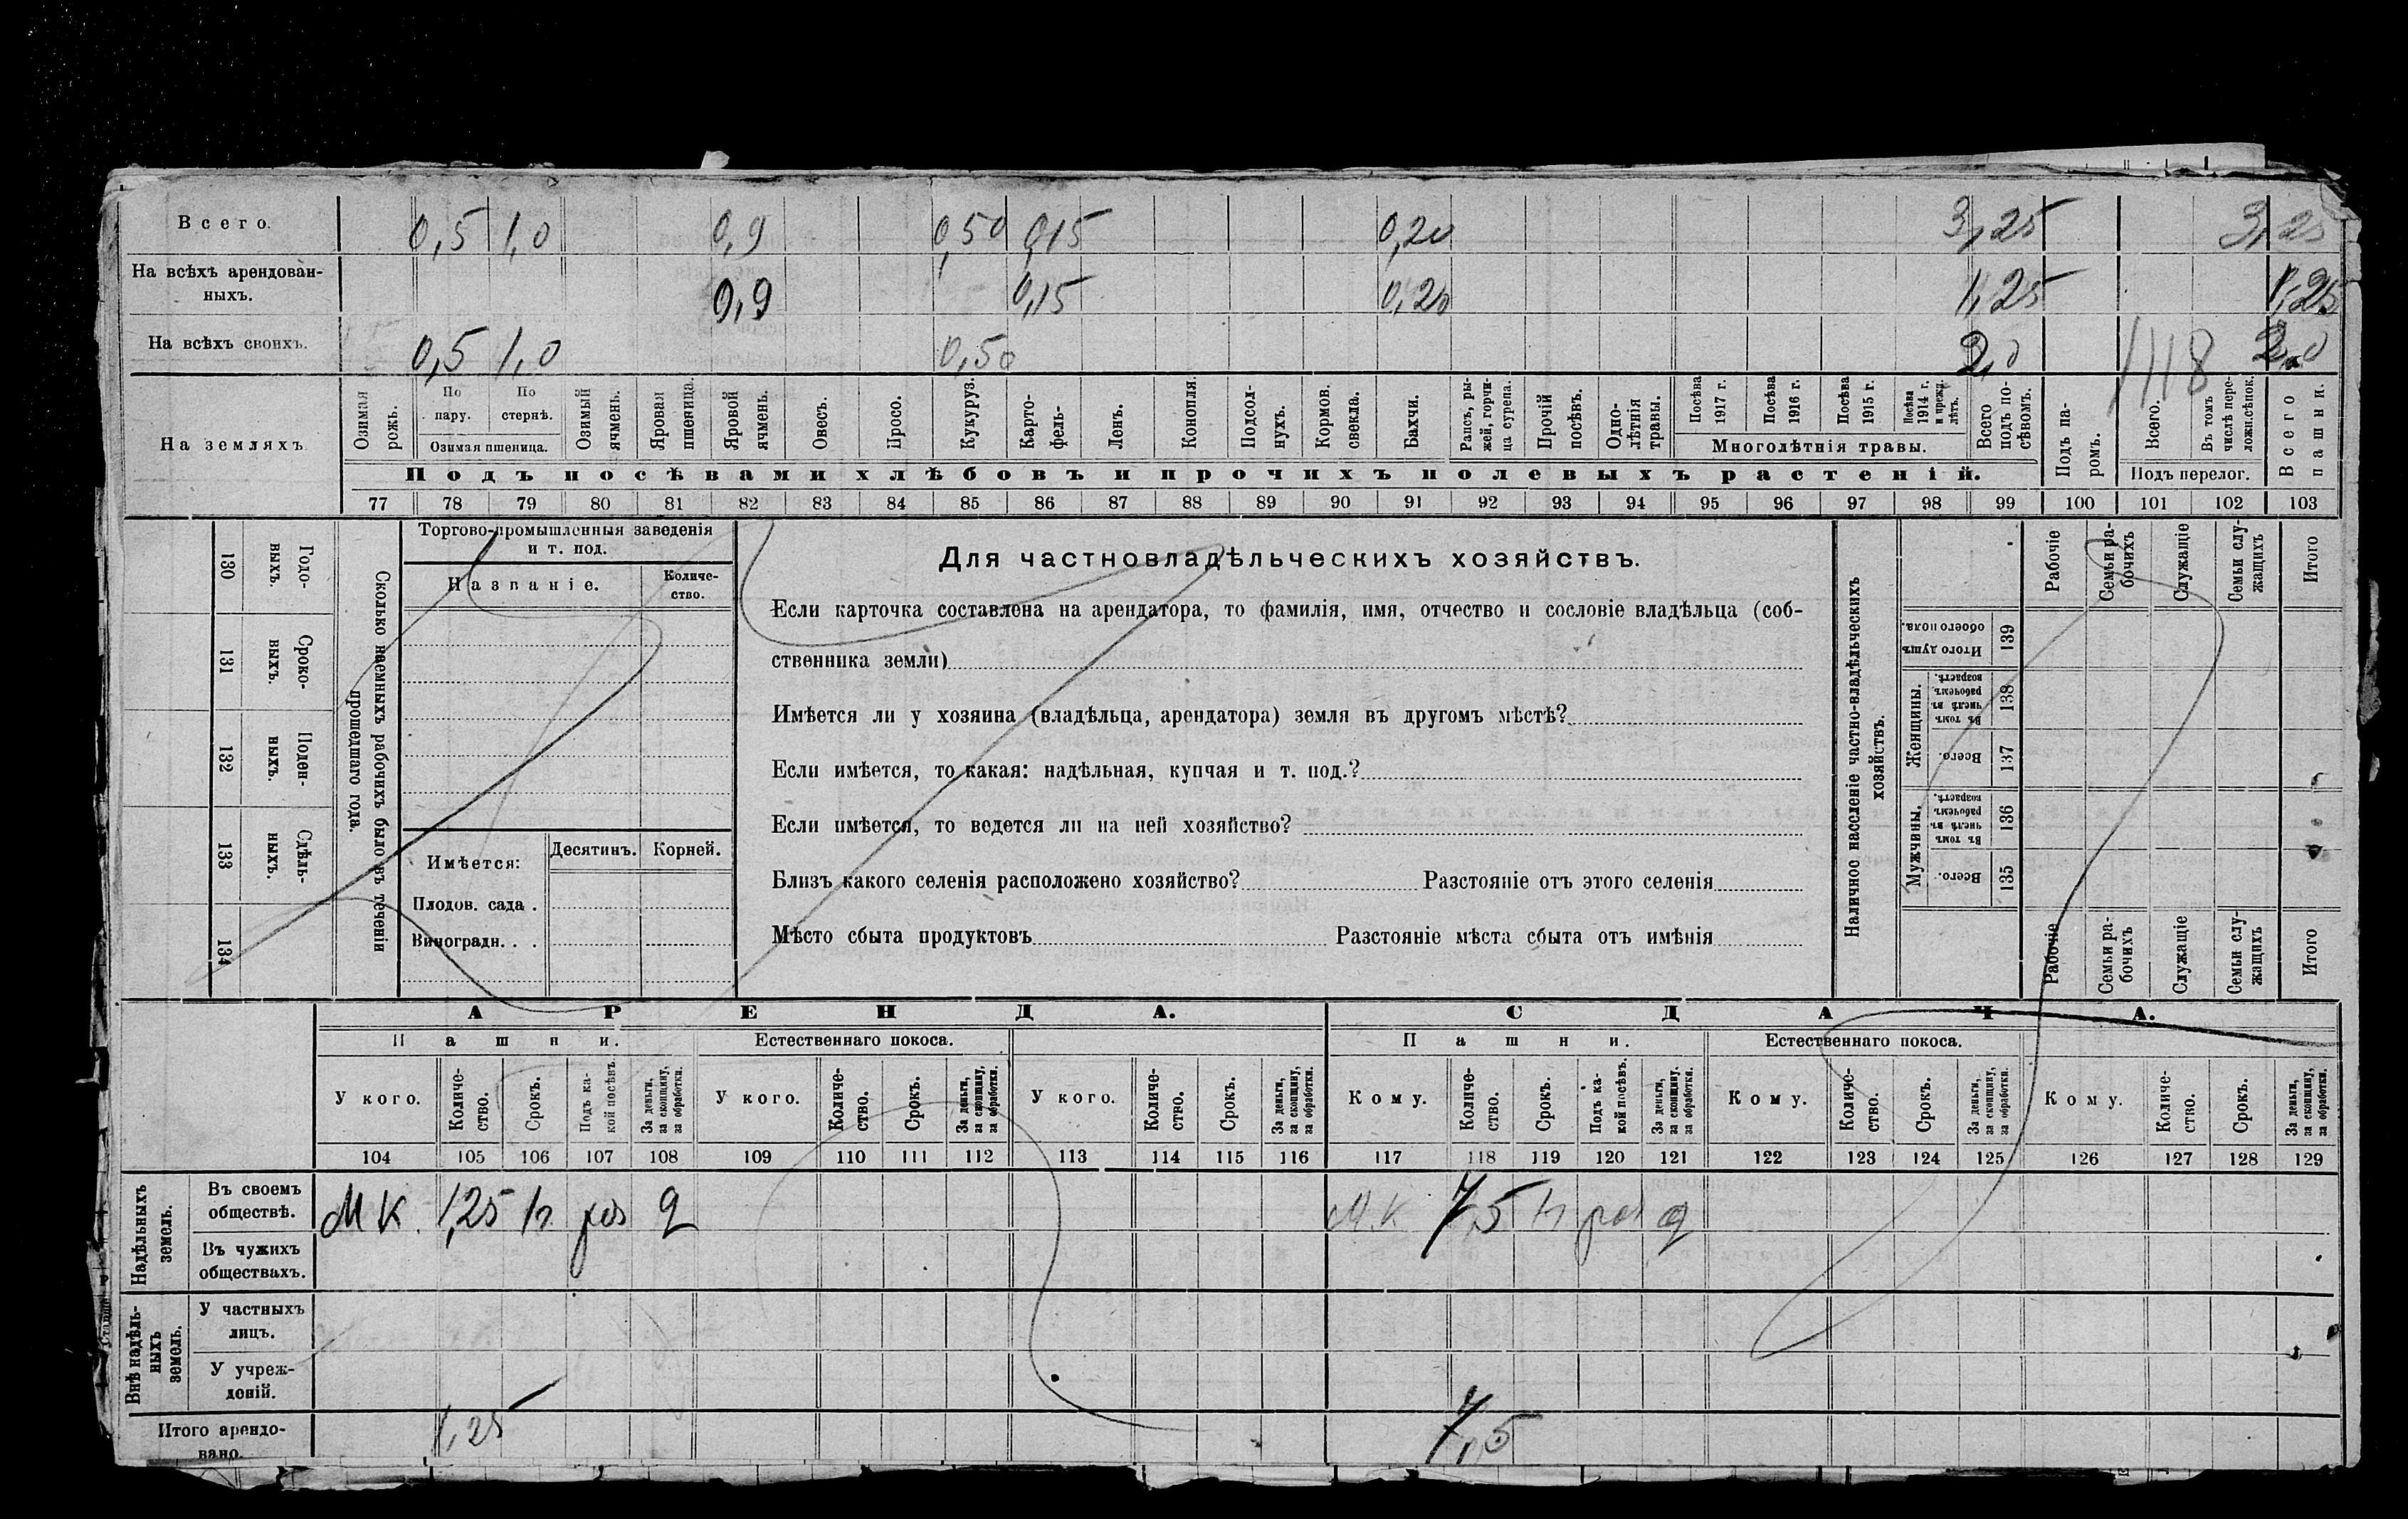 Всего. 0,5 1,0 0,9 0,50 0,15 0,20 3,25 3,25
На всѣхъ арендован-
ныхъ. 0,9 0,15 0,20 1,25 1,25
На всѣхъ своихъ. 0,5 1,0 0,50 2,0 1118 2,0
На земляхъ
Озимая рожь.
По пару.
По стернѣ.
Озимая пшеница.
Озимый ячмень.
Яровая пшеница.
Яровой ячмень.
Овесъ.
Просо.
Кукуруз.
Карто-
фель-
Ленъ.
Конопля.
Подсол-
нухъ.
Кормов.
свекла.
Бахчи.
Рапсъ, ры-
жей, горчи-
ца сурепа.
Прочій
посѣвъ.
Одно-
лѣтнія
травы.
Посѣва
1917 г.
Посѣва
1916 г.
Посѣва
1915 г.
Посѣва
1914 г.
и прежн.
лѣтъ.
Многолѣтнія травы.
Всего
подъ по-
сѣвомъ.
Подъ па-
ромъ.
Всего.
Въ томъ
числѣ пере-
ложн.сѣнок.
Подъ перелог.
Всего
пашни.
Подъ посѣвами хлѣбовъ и прочихъ полевыхъ растеній.
77 78 79 80 81 82 83 84 85 86 87 88 89 90 91 92 93 94 95 96 97 98 99 100 101 102 103
130 Годо-
ныхъ.
131 Сроко-
ныхъ.
132 Поден-
ныхъ.
133 Сдѣль-
ныхъ.
134
Сколько наемныхъ рабочихъ было въ теченіи
прошедшаго года.
Торгово-промышленныя заведенія
и т. под.
Названіе.
Количе-
ство.
Имѣется:
Десятинъ. Корней.
Плодов. сада .
Виноградн. . .
Для частновладѣльческихъ хозяйствъ.
Если карточка составлена на арендатора, то фамилія, имя, отчество и сословіе владѣльца (соб-
ственника земли)
Имѣется ли у хозяина (владѣльца, арендатора) земля въ другомъ мѣстѣ?
Если имѣется, то какая: надѣльная, купчая и т. под.?
Если имѣется, то ведется ли на ней хозяйство?
Близъ какого селенія расположено хозяйство? Разстояніе отъ этого селенія
Мѣсто сбыта продуктовъ Разстояніе мѣста сбыта отъ имѣнія
Наличное населеніе частно-владѣльческихъ
хозяйствъ.
Рабочіе
Семьи ра-
бочихъ
Служащіе
Семьи слу-
жащихъ
Итого
Итого душъ
обоего пола.
139
Женщины.
Въ томъ
числѣ въ
рабочемъ
возрастѣ.
138
Всего.
137
Мужчины.
Въ томъ
числѣ въ
рабочемъ
возрастѣ.
136
Всего.
135
Рабочіе
Семьи ра-
бочихъ
Служащіе
Семьи слу-
жащихъ
Итого
АРЕНДА. СДАЧА.
Пашни. Естественнаго покоса. Пашни. Естественнаго покоса.
У кого.
Количе-
ство.
Срокъ.
Подъ ка-
кой посѣвъ.
За деньги,
за скопщину,
за обработки.
У кого.
Количе-
ство.
Срокъ.
За деньги,
за скопщину,
за обработки.
У кого.
Количе-
ство.
Срокъ.
За деньги,
за скопщину,
за обработки.
Кому.
Количе-
ство.
Срокъ.
Подъ ка-
кой посѣвъ.
За деньги,
за скопщину.
за обработки.
Кому.
Количе-
ство.
Срокъ.
За деньги,
за скопщину,
за обработки.
Кому.
Количе-
ство.
Срокъ.
За деньги,
за скопщину,
за обработки.
104 105 106 107 108 109 110 111 112 113 114 115 116 117 118 119 120 121 122 123 124 125 126 127 128 129
Надѣльныхъ
земель.
Въ своемъ
обществѣ. МК. 1,25 д М.К 7,5 д
Въ чужихъ
обществахъ.
Внѣ надѣль-
ныхъ
земель.
У частныхъ
лицъ.
У учреж-
деній.
Итого арендо-
вано. 1,25 7,5